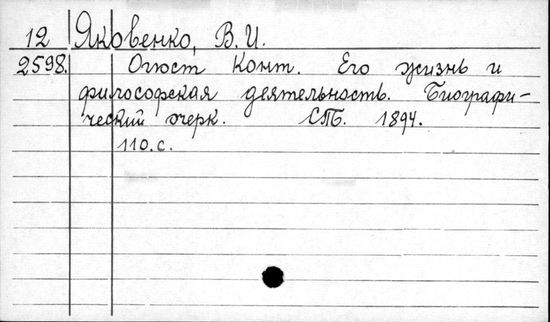 12 Яковенко, В.И.
2598. Огюст Конт. Его жизнь и
философская деятельность. Биографи-
ческий очерк. СПб. 1894.
110.с.